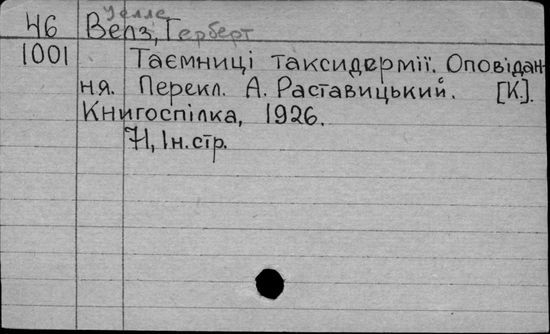 Уеллс
46 Велз, Герберт
1001 Таємниці таксидермії. Оповідан-
ня. Перекл. А. Раставицький. [К.].
Книгоспілка, 1926.
71, Ін. стр.